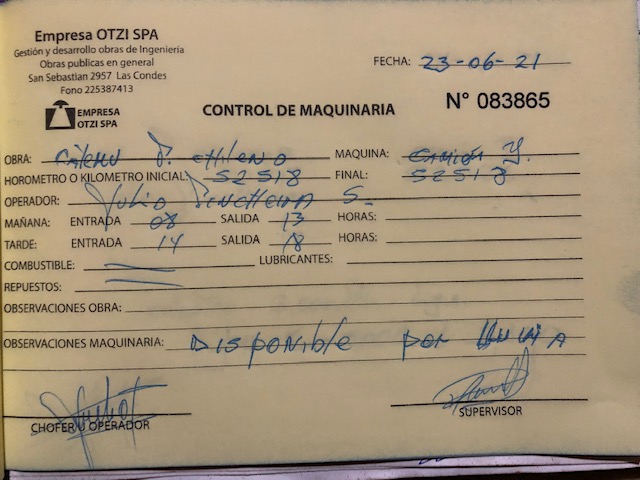 Empresa OTZI SPA
Gestión y desarrollo obras de Ingeniería
Obras publicas en general
San Sebastian 2957 Las Condes
Fono 223387413
FECHA: 23-06-21
EMPRESA
OTZI SPA
CONTROL DE MAQUINARIA
N° 083865
OBRA: MAQUINA: Camion
HOROMETRO O KILOMETRO INICIAL: 52518 FINAL: 52518
OPERADOR: Julio S-
MAÑANA: ENTRADA 08 SALIDA 13 HORAS:
TARDE: ENTRADA 14 SALIDA 18 HORAS:
COMBUSTIBLE: LUBRICANTES:
REPUESTOS:
OBSERVACIONES OBRA:
OBSERVACIONES MAQUINARIA: Disponible por lluvia
CHOFER Y OPERADOR
SUPERVISOR